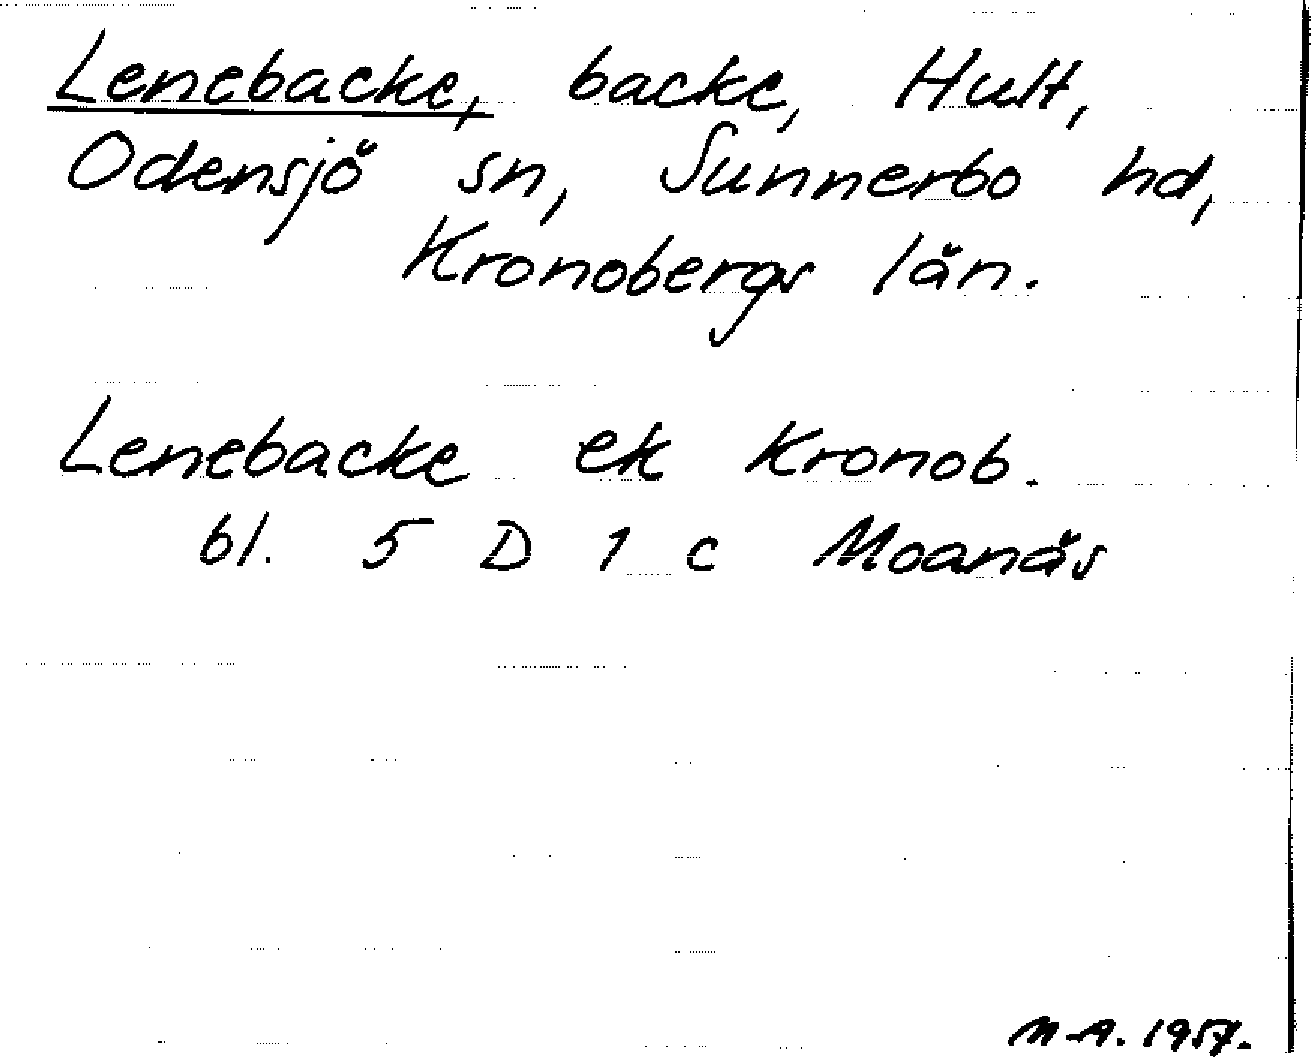 Lenebacke, backe, Hult,
Odensjö sn, Sunnerbo hd,
Kronobergs län.
Lenebacke ek Kronob.
bl. 5 D 1 c Moanäs
M-A. 1957.